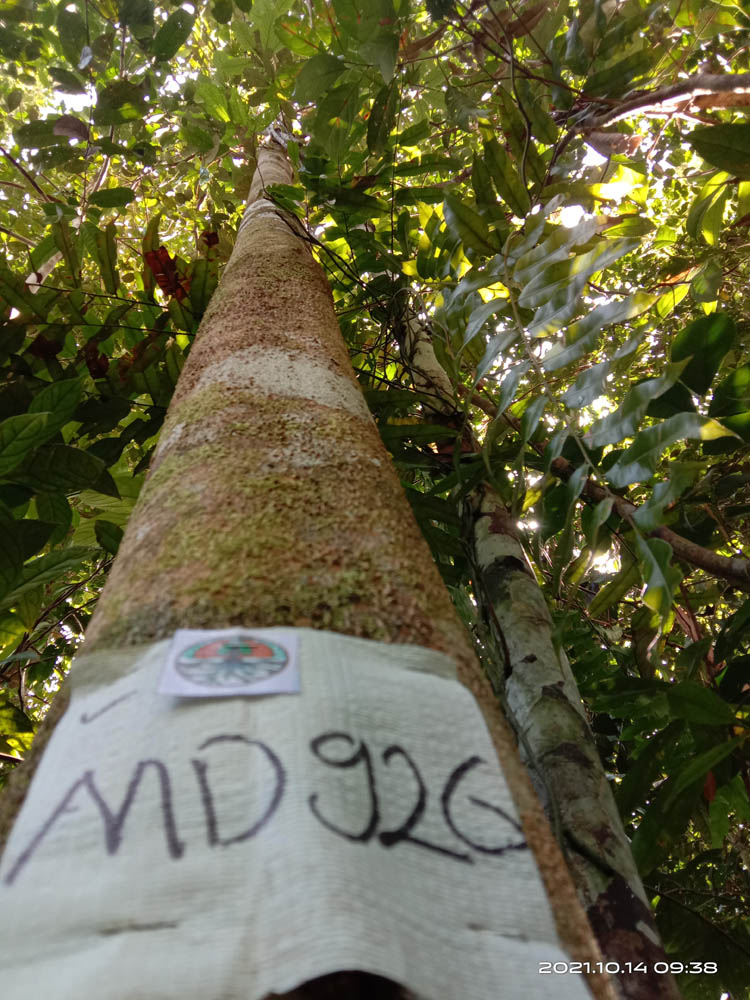 MD 926
2021.10.14 09:38